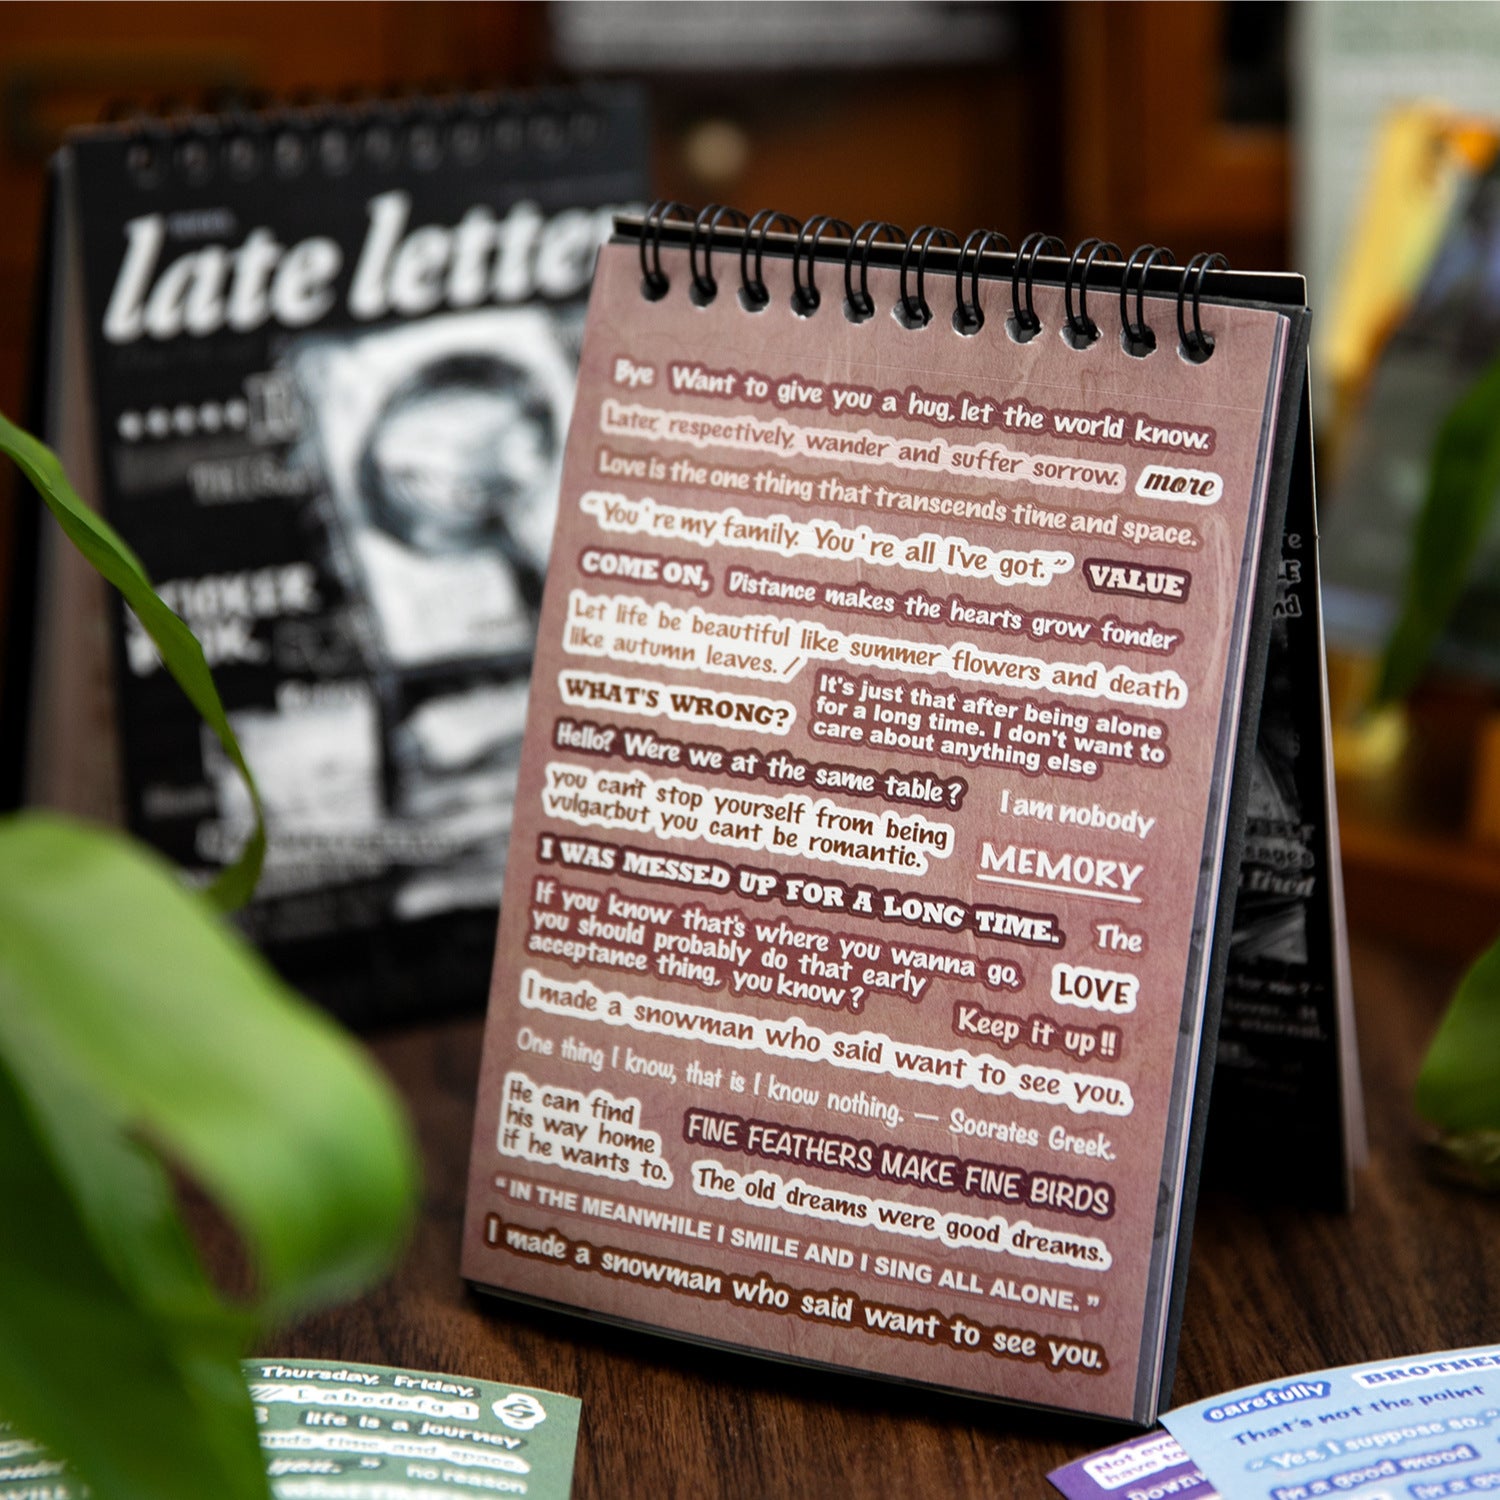 late letter
Bye Want to give you a hug, let the world know.
Later, respectively, wander and suffer sorrow. more
Love is the one thing that transcends time and space.
"You're my family. You're all I've got." VALUE
COME ON, Distance makes the hearts grow fonder
Let life be beautiful like summer flowers and death
like autumn leaves. /
WHAT'S WRONG?
It's just that after being alone
for a long time. I don't want to
care about anything else
Hello? Were we at the same table?
I am nobody
you can't stop yourself from being
vulgar,but you cant be romantic.
MEMORY
I WAS MESSED UP FOR A LONG TIME.
The
If you know that's where you wanna go,
you should probably do that early
acceptance thing, you know?
LOVE
Keep it up!!
I made a snowman who said want to see you.
One thing I know, that is I know nothing. — Socrates Greek.
He can find
his way home
if he wants to.
FINE FEATHERS MAKE FINE BIRDS
The old dreams were good dreams.
"IN THE MEANWHILE I SMILE AND I SING ALL ALONE."
I made a snowman who said want to see you.
Thursday, Friday,
/// I abcdefg I
life is a journey
time and space.
you. "
no reason
carefully BROTHE
That's not the point
"Yes, I suppose so."
in a good mood
Not eve
have to
Down